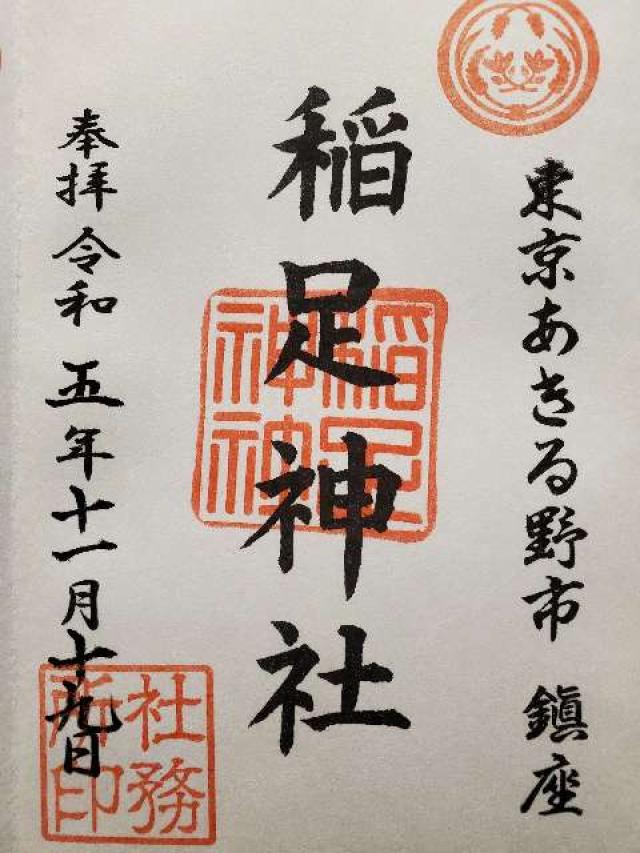 東京あきる野市 鎮座
稲足神社
奉拝 令和 五年十一月十九日
稲足
神社
社務
所印